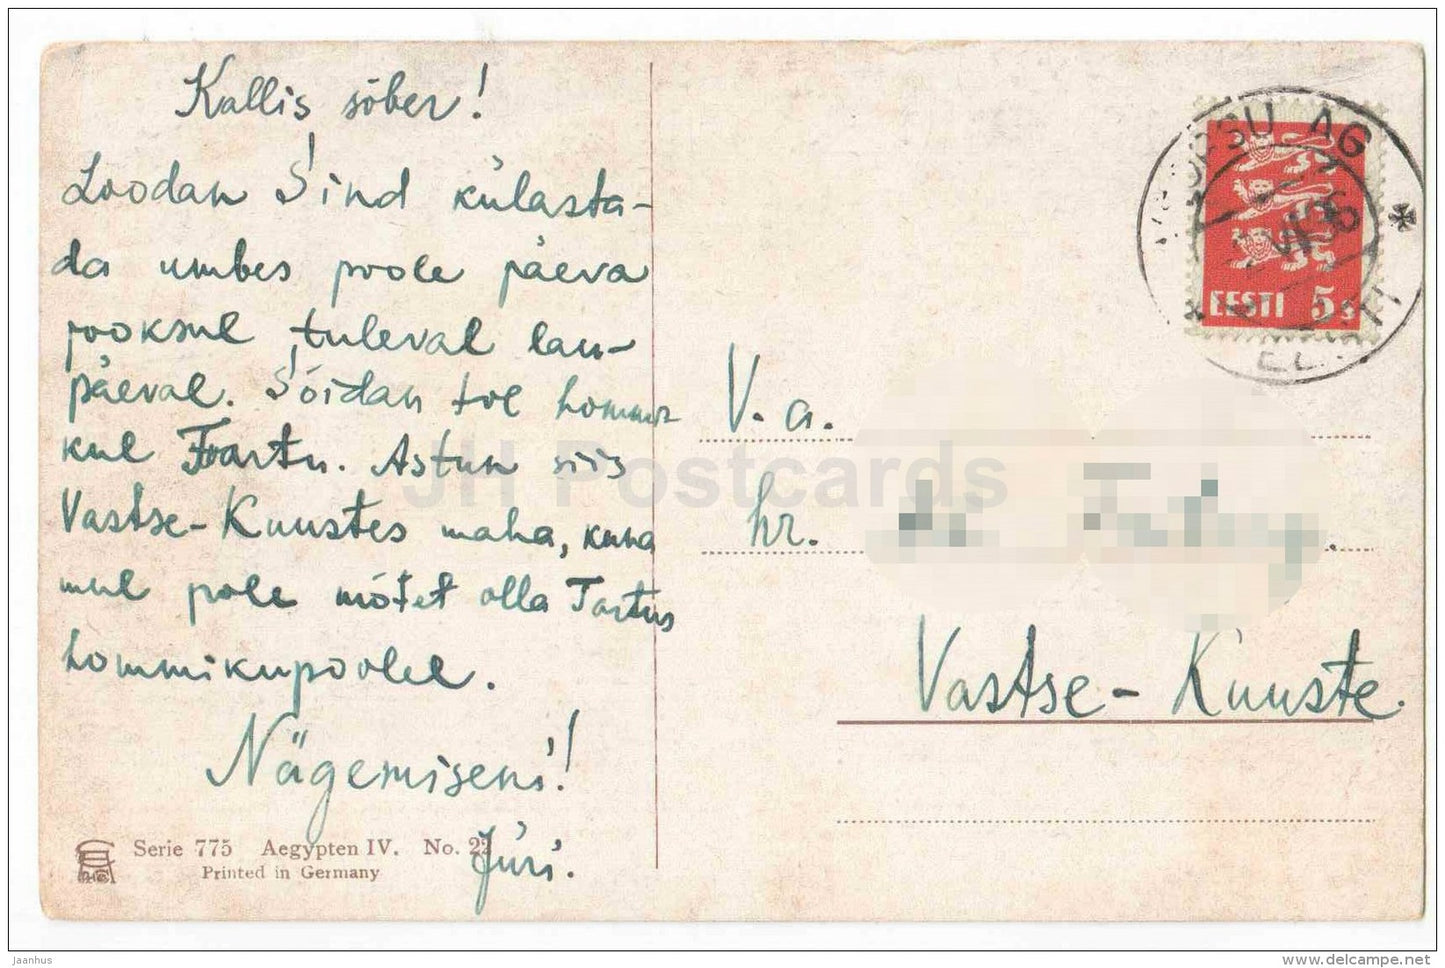 Kallis sõber!
Loodan Sind külasta-
da umbes poole päeva
jooksul tuleval lau-
päeval. Sõidan tol hommi-
kul Tartu. Astun siis
Vastse-Kuustes maha, kuna
mul pole mõtet olla Tartus
hommikupoolel.
Nägemiseni!
Jüri.
Serie 775 Aegypten IV. No. 22
Printed in Germany
EESTI 5 s
AG
EESTI
V. a.
hr.
Vastse-Kuuste.
JH Postcards
jaanhus
delcampe.net